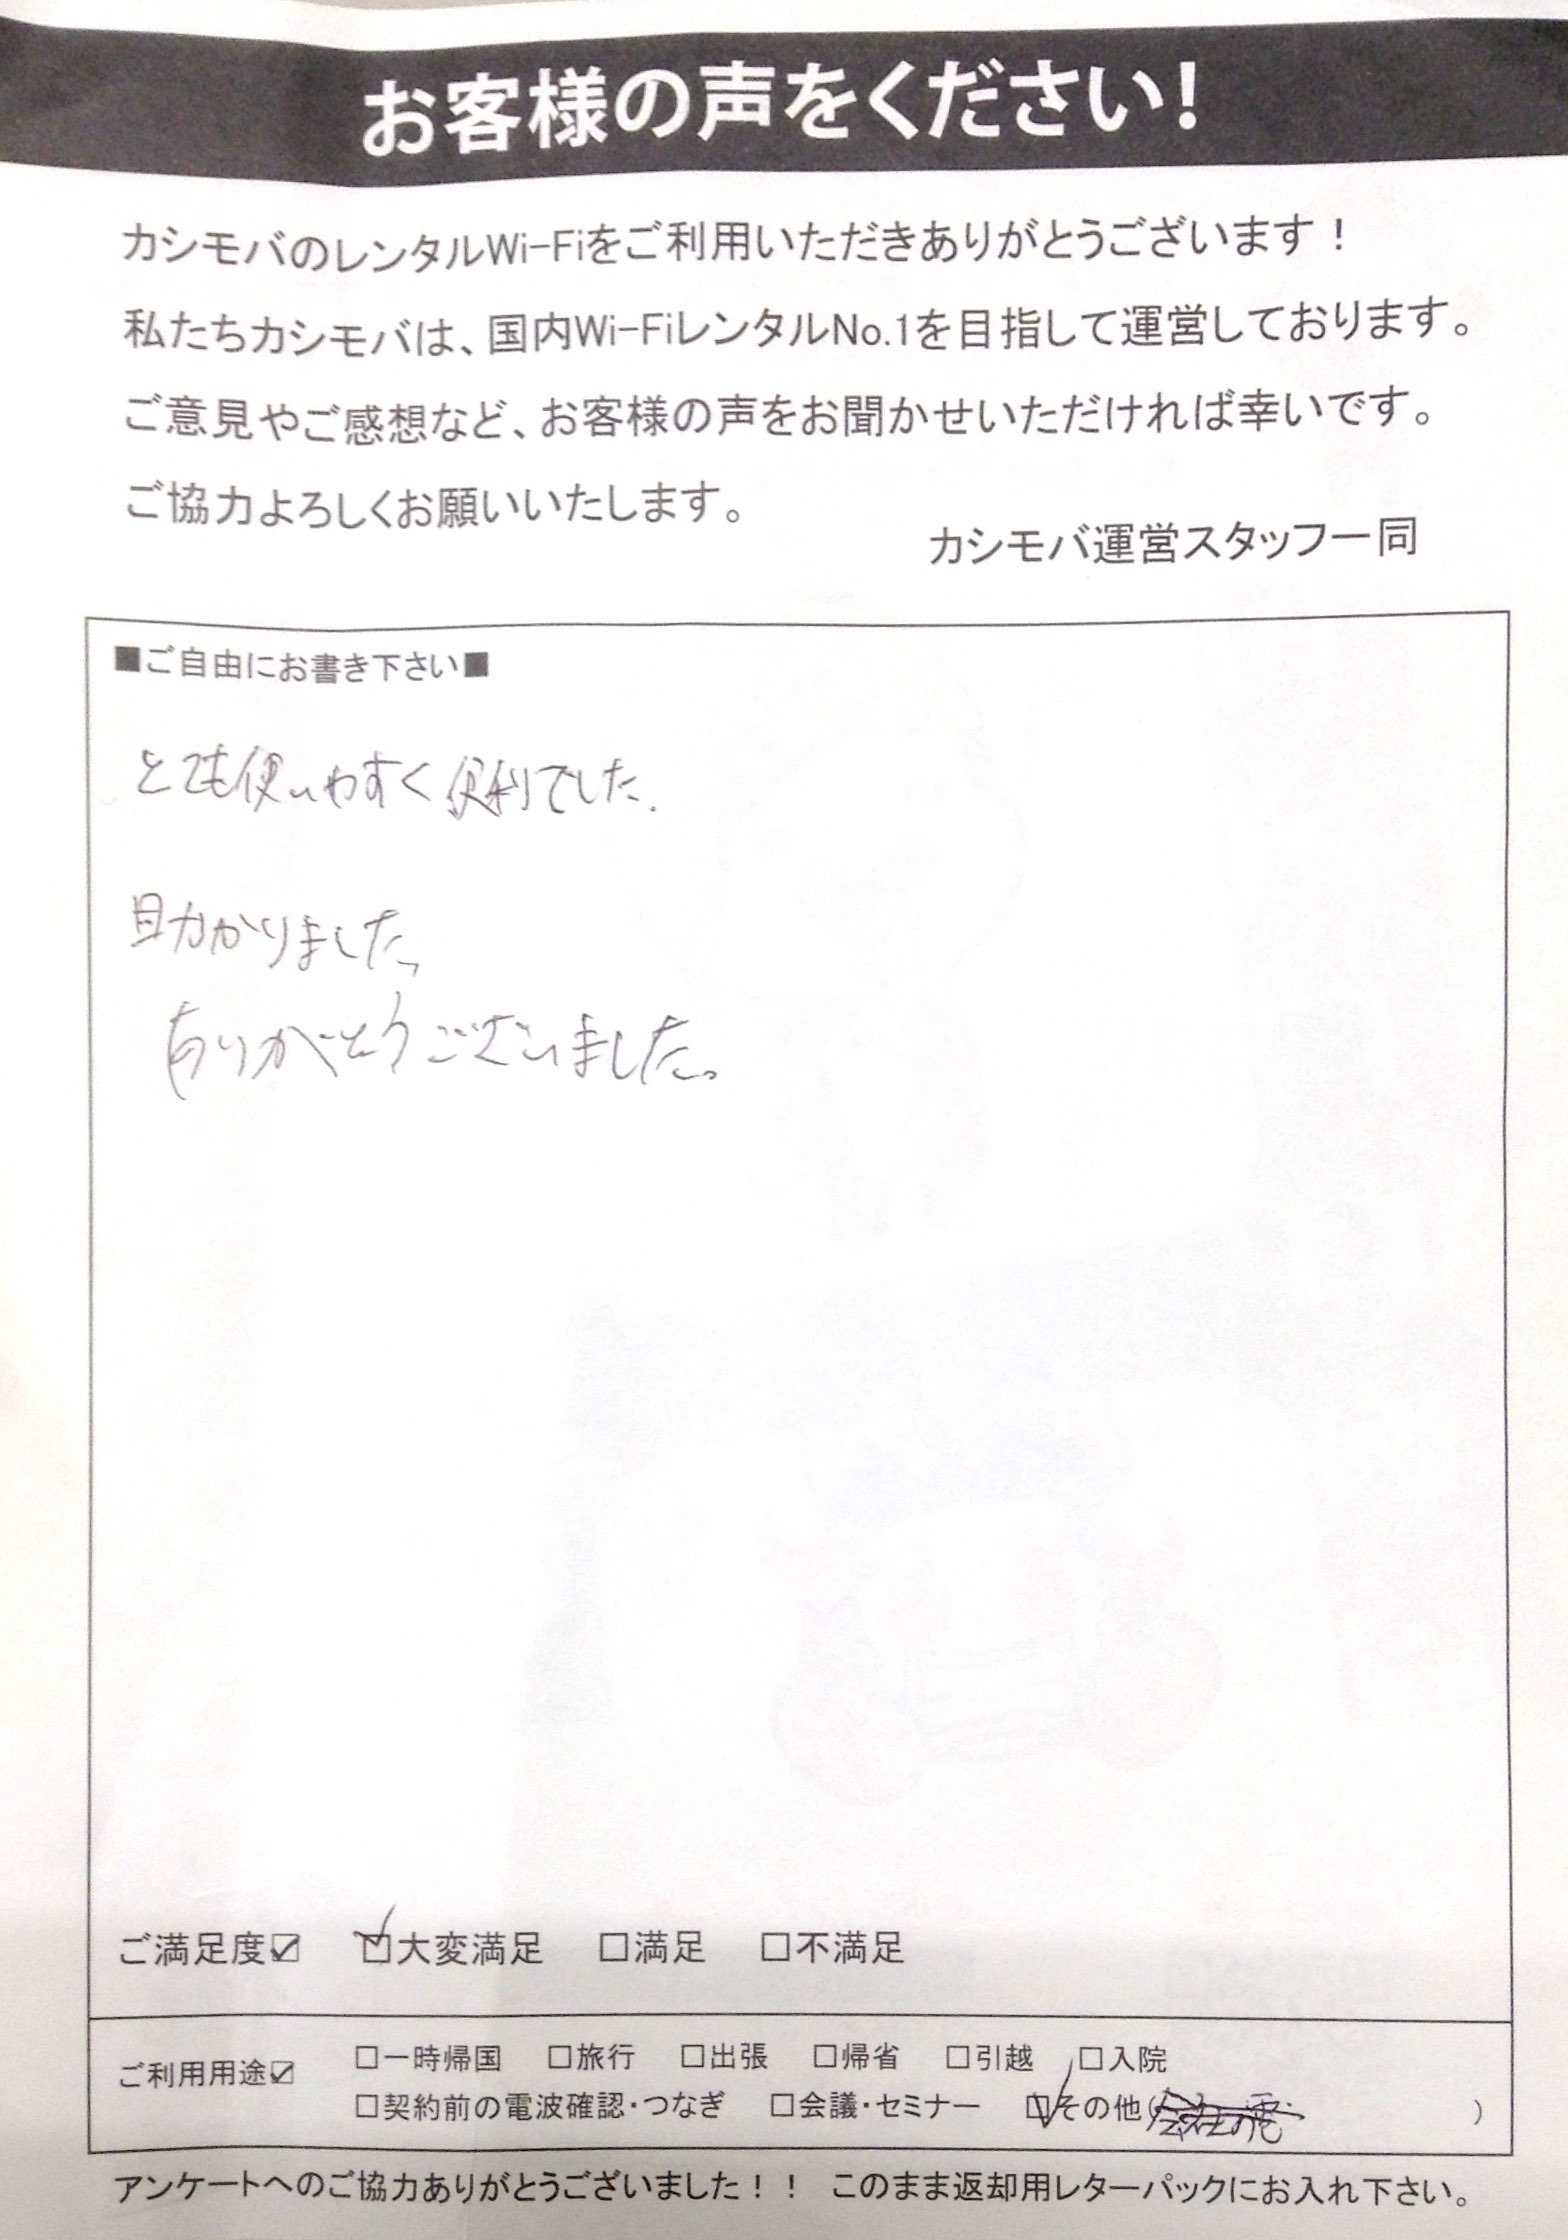 お客様の声をください!
カシモバのレンタルWi-Fiをご利用いただきありがとうございます！
私たちカシモバは、国内Wi-FiレンタルNo.1を目指して運営しております。
ご意見やご感想など、お客様の声をお聞かせいただければ幸いです。
ご協力よろしくお願いいたします。
カシモバ運営スタッフ一同
■ご自由にお書き下さい■
とても使いやすく便利でした.
助かりました、
ありがとうございました。
ご満足度☑ ☑大変満足 □満足 □不満足
ご利用用途☑ □一時帰国 □旅行 □出張 □帰省 □引越 □入院
□契約前の電波確認・つなぎ □会議・セミナー ☑その他( )
アンケートへのご協力ありがとうございました！！ このまま返却用レターパックにお入れ下さい。